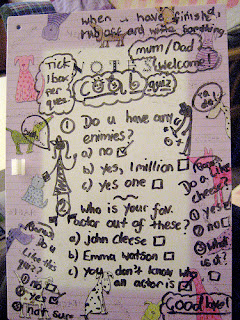 when u have finished,
rub off and write something
mum/Dad
Welcome!
Tick
1 box
per
ques.
quiz
ta
da!
① Do u have any
enimies?
a) no
b) yes, 1 million
c) yes one
② Who is your fav.
actor out of these?
a) john cleese
b) Emma Watson
c) you don't know who
an actor is
Do u
like this
quiz?
① no
② yes
③ not sure
Do a
① yes
② no
③ What
is it?
Goodbye!